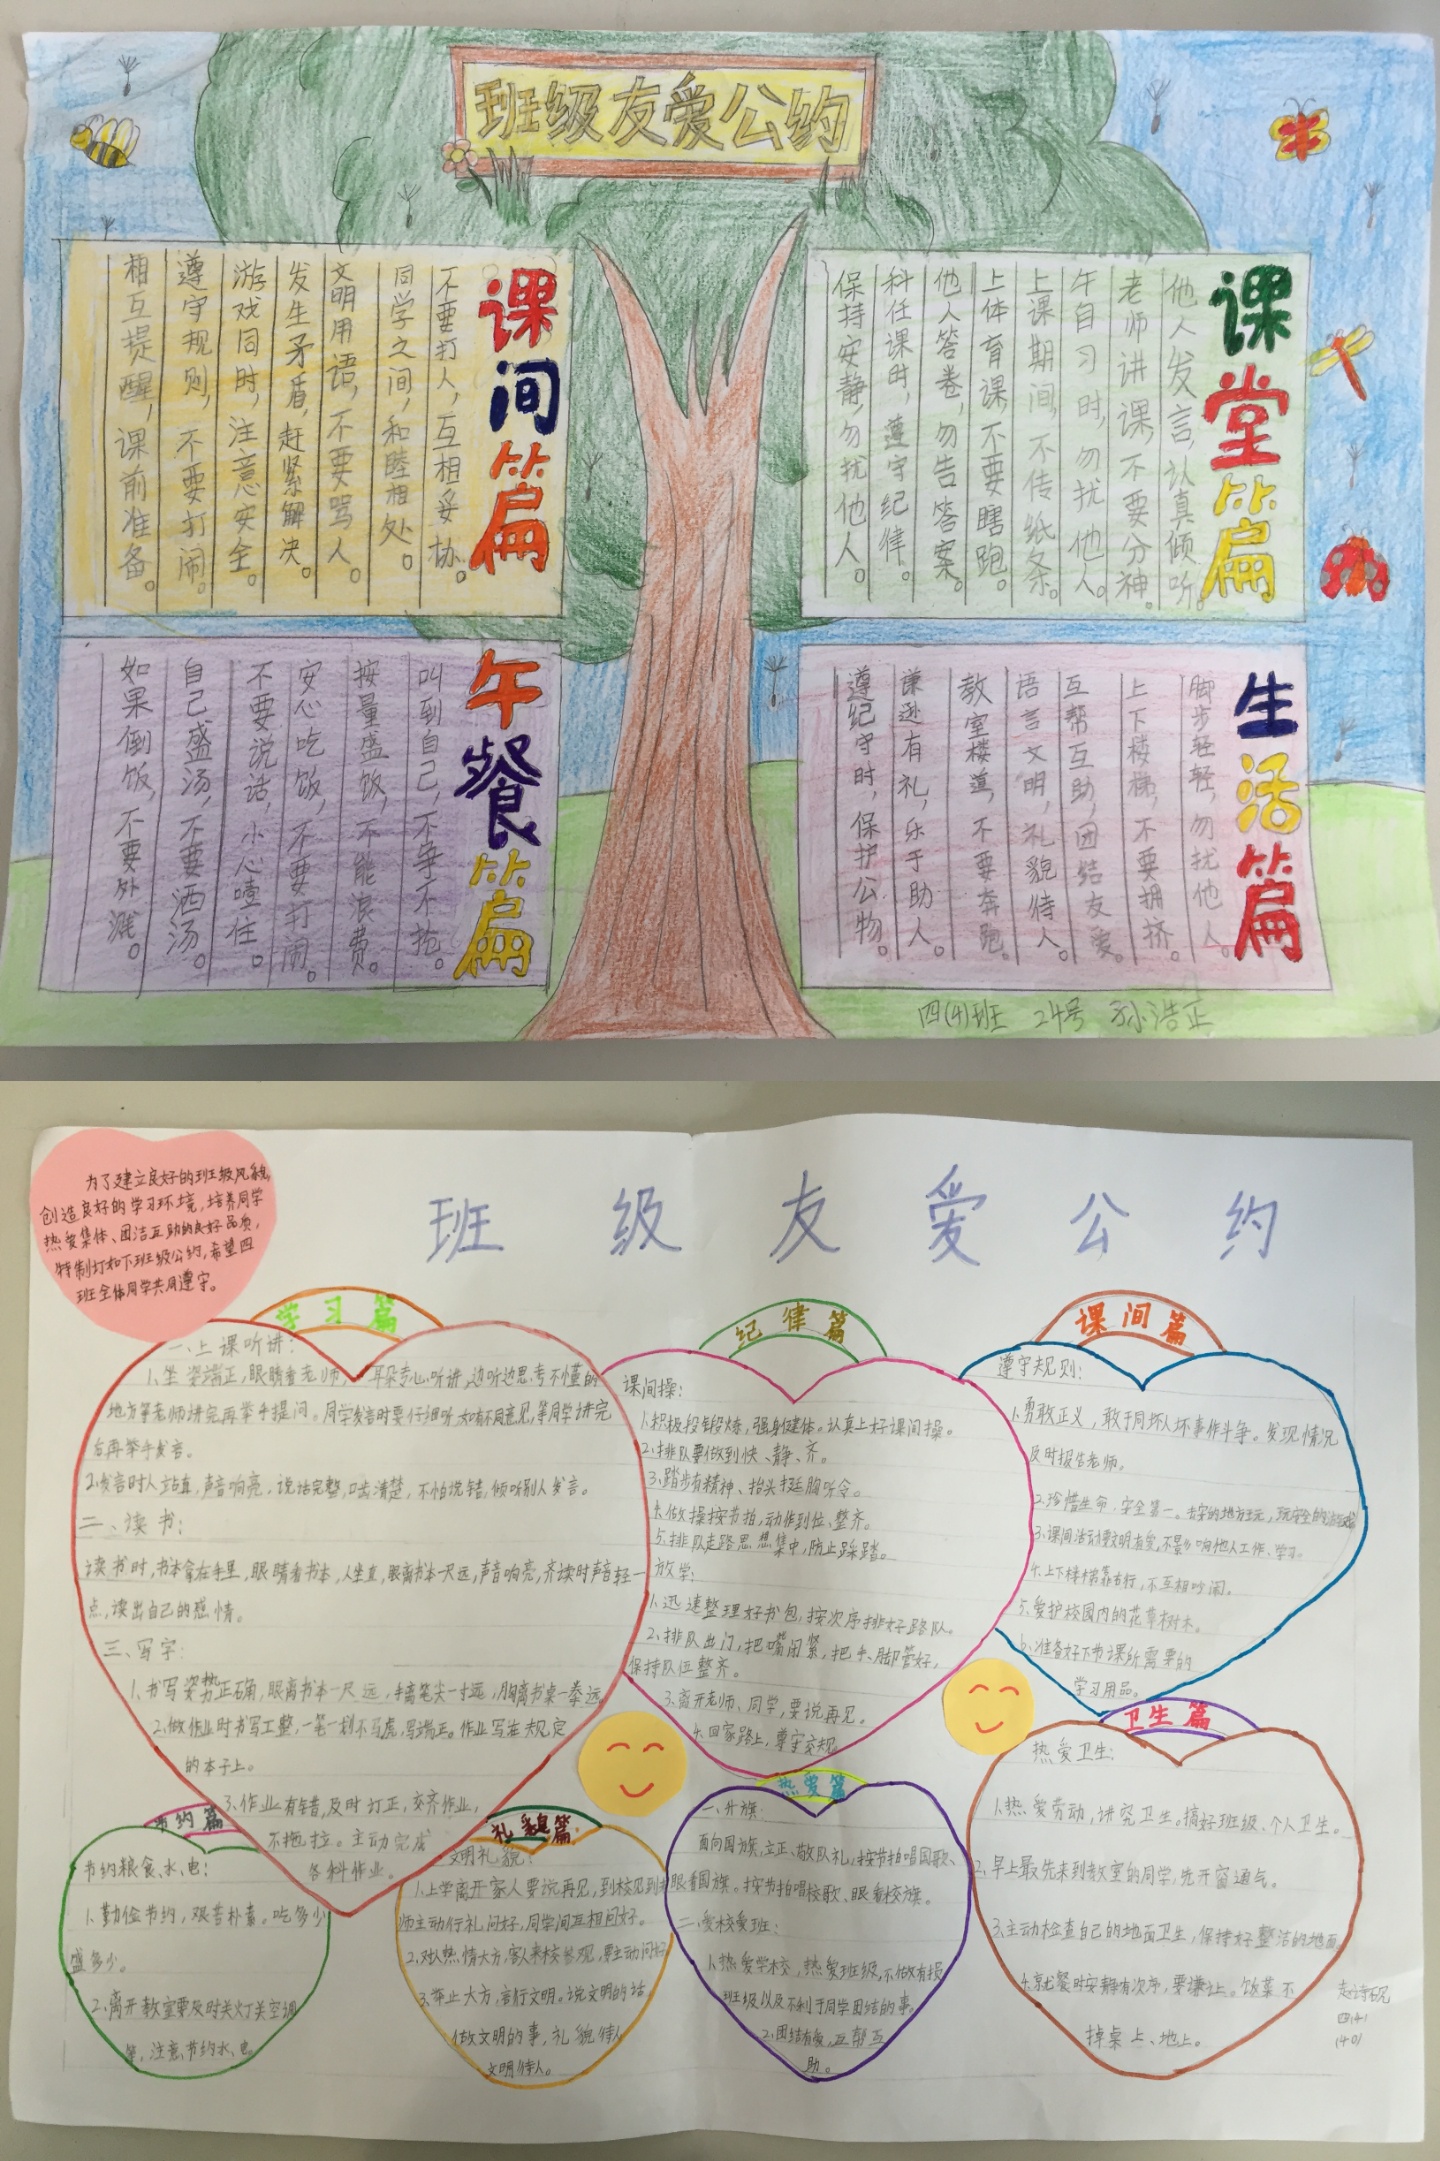 班级友爱公约
课堂篇
他人发言,认真倾听。
老师讲课,不要分神。
午自习时,勿扰他人。
上课期间,不传纸条。
上体育课,不要瞎跑。
他人答卷,勿告答案。
科任课时,遵守纪律。
保持安静,勿扰他人。
课间篇
不要打人,互相妥协。
同学之间,和睦相处。
文明用语,不要骂人。
发生矛盾,赶紧解决。
游戏同时,注意安全。
遵守规则,不要打闹。
相互提醒,课前准备。
生活篇
脚步轻轻,勿扰他人。
上下楼梯,不要拥挤。
互帮互助,团结友爱。
语言文明,礼貌待人。
教室楼道,不要奔跑。
谦逊有礼,乐于助人。
遵纪守时,保护公物。
午餐篇
叫到自己,不争不抢。
按量盛饭,不能浪费。
安心吃饭,不要打闹。
不要说话,小心噎住。
自己盛汤,不要洒汤。
如果倒饭,不要外溅。
四(4)班 24号 孙浩正
班级友爱公约
为了建立良好的班级风貌,
创造良好的学习环境,培养同学
热爱集体、团洁互助的良好品质,
特制订如下班级公约,希望四
班全体同学共同遵守。
学习篇
一、上课听讲:
1.坐姿端正,眼睛看老师,耳朵专心听讲,边听边思考不懂的
地方等老师讲完再举手提问。同学发言时要仔细听,如有不同意见,等同学讲完
后再举手发言。
2.发言时人站直,声音响亮,说话完整,吐字清楚,不怕说错,倾听别人发言。
二、读书:
读书时,书本拿在手里,眼睛看书本,人坐直,眼离书本一尺远,声音响亮,齐读时声音轻一
点,读出自己的感情。
三、写字:
1.书写姿势正确,眼离书本一尺远,手离笔尖一寸远,胸离书桌一拳远。
2.做作业时书写工整,一笔一划不马虎,写端正。作业写在规定
的本子上。
3.作业有错,及时订正,交齐作业,
不拖拉。主动完成
各科作业。
纪律篇
课间操:
1.积极段锻炼,强身健体。认真上好课间操。
2.排队要做到快、静、齐。
3.踏步有精神、抬头挺胸听令。
4.做操按节拍,动作到位、整齐。
5.排队走路思想集中,防止踩踏。
放学:
1.迅速整理好书包,按次序排好路队。
2.排队出门,把嘴闭紧,把手、脚管好,
保持队伍整齐。
3.离开老师、同学,要说再见。
4.回家路上,遵守交规
课间篇
遵守规则:
1.勇敢正义,敢于同坏人坏事作斗争。发现情况
及时报告老师。
2.珍惜生命,安全第一。
3.课间活动要文明有爱,不影响他人工作、学习。
4.上下楼梯靠右行,不互相吵闹。
5.爱护校园内的花草树木。
6.准备好下节课所需要的
学习用品。
节约篇
节约粮食、水、电:
1.勤俭节约,艰苦朴素。吃多少
盛多少。
2.离开教室要及时关灯关空调
等,注意节约水、电。
礼貌篇
文明礼貌:
1.上学离开家人要说再见,到校见到老
师主动行礼问好,同学间互相问好。
2.对人热情大方,客人来校参观,要主动问好
3.举止大方,言行文明。说文明的话,
做文明的事,礼貌待人
文明待人。
热爱篇
一、升旗:
面向国旗,立正、敬队礼,按节拍唱国歌、
眼看国旗。按节拍唱校歌、眼看校旗。
二、爱校爱班:
1.热爱学校,热爱班级,不做有损
班级以及不利于同学团结的事。
2.团结有爱,互帮互
助。
卫生篇
热爱卫生:
1.热爱劳动,讲究卫生。搞好班级、个人卫生。
2.早上最先来到教室的同学,先开窗通气。
3.主动检查自己的地面卫生,保持好整洁的地面
4.就餐时安静有次序,要谦让。饭菜不
掉桌上、地上。
四(4)
(40)